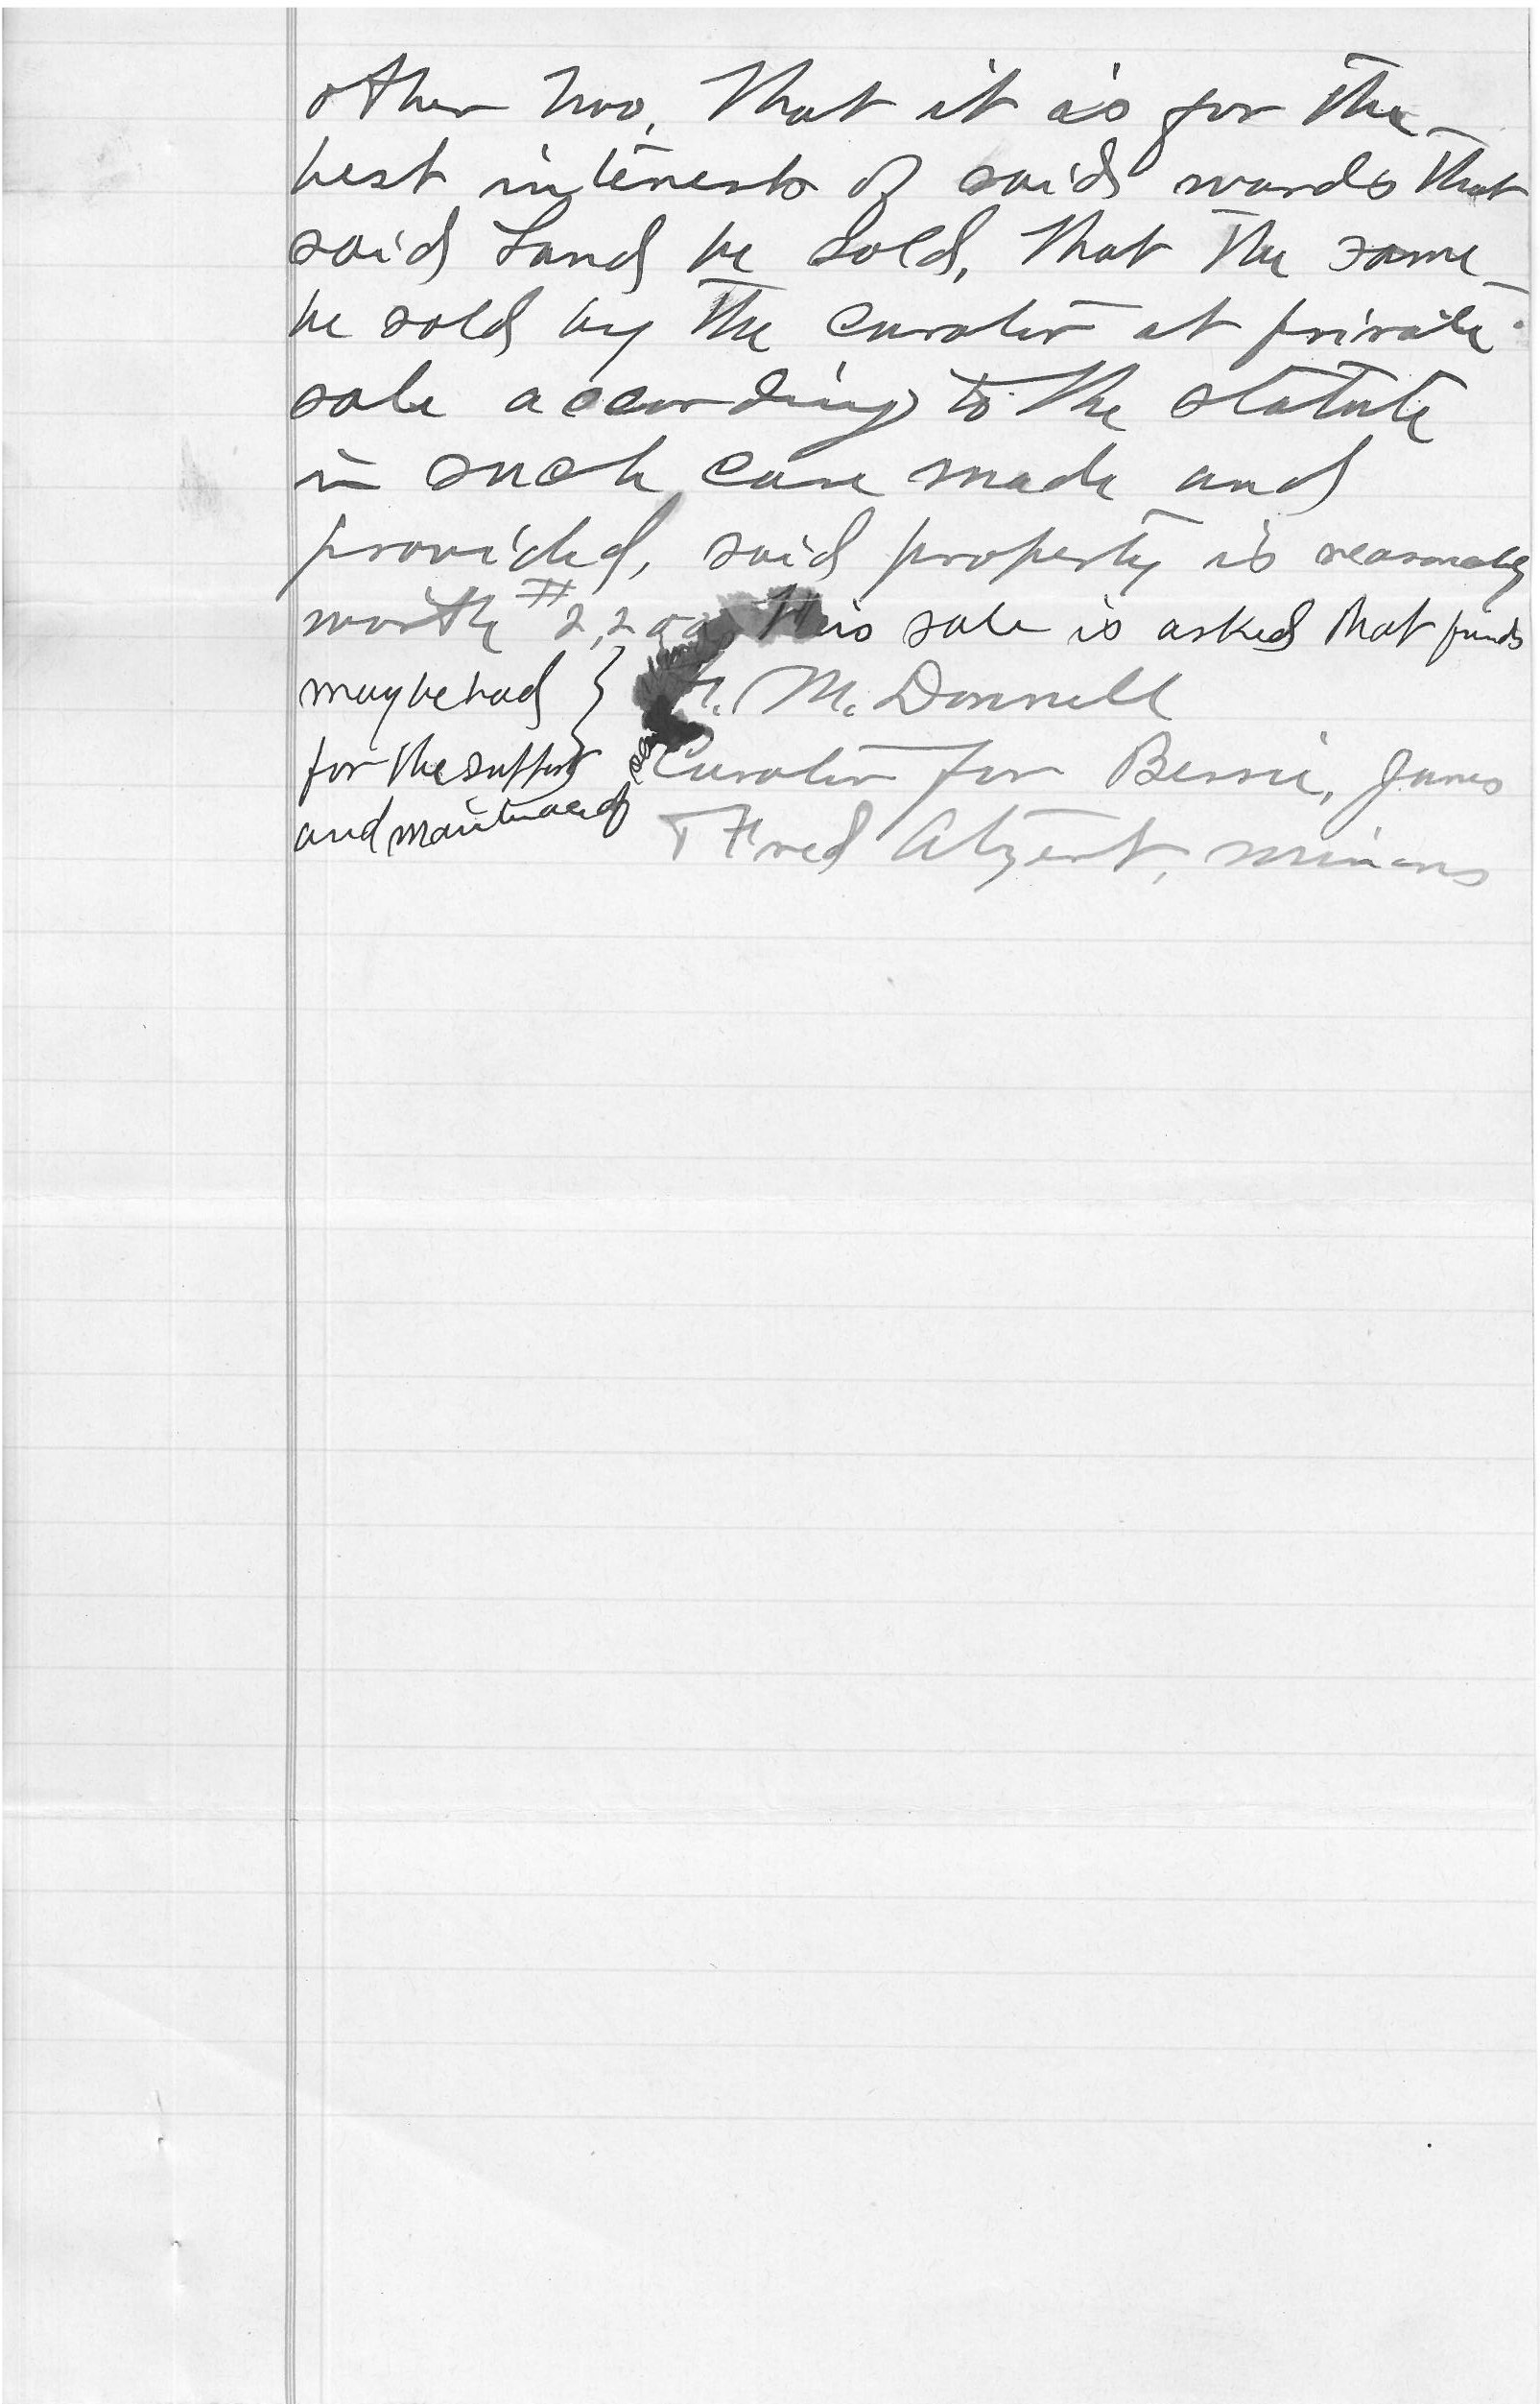 other two, that it is for the
best interests of said wards that
said Land be sold, that the same
be sold by the curator at private
sale according to the statute
in such case made and
provided, said property is reasonably
worth $2,200 This sale is asked that funds
may be had
for the support
and maintenance of
McDonnell
Curator for Bessie, James
+ Fred Alzert, minors